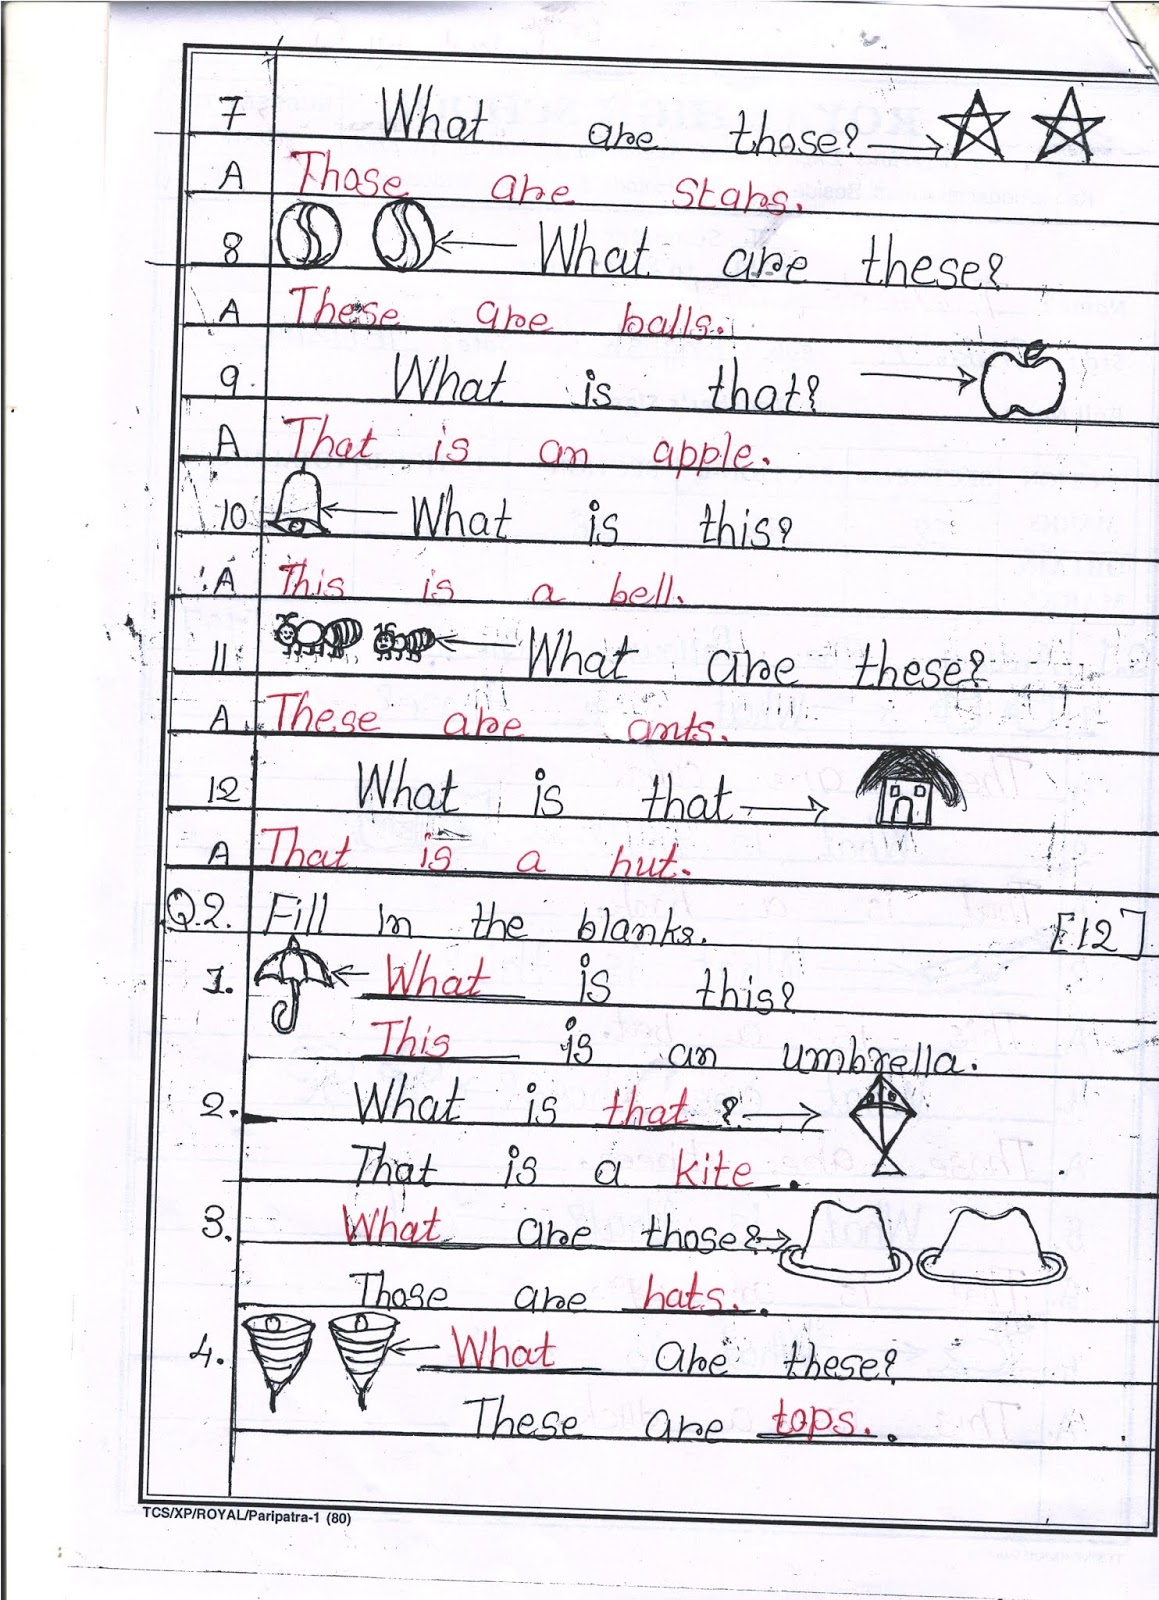 7 What are those?
A Those are stars.
8 What are these?
A These are balls.
9. What is that?
A That is an apple.
10 What is this?
A This is a bell.
11 What are these?
A. These are ants.
12 What is that
A That is a hut.
Q.2. Fill in the blanks. [12]
1. What is this?
This is an umbrella.
2. What is that ?
That is a kite.
3. What are those?
Those are hats..
4. What are these?
These are tops..
TCS/XP/ROYAL/Paripatra-1 (80)